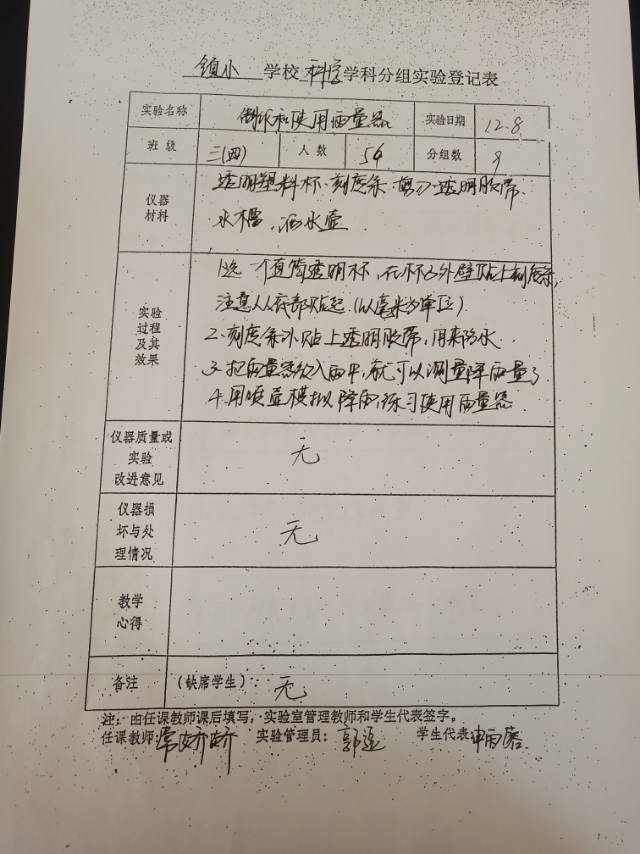 镇小 学校 科学 学科分组实验登记表
实验名称 制作和使用雨量器 实验日期 12.8
班级 三(四) 人数 54 分组数 9
仪器材料 透明塑料杯、刻度条、剪刀、透明胶带、
水槽，洒水壶
实验过程及其效果 1.选一个直筒透明杯，在杯子外壁贴上刻度条，
注意从底部贴起.(以毫米为单位)
2.刻度条外贴上透明胶带,用来防水.
3.把雨量器放入雨中,就可以测量降雨量了
4.用喷壶模拟降雨,练习使用雨量器.
仪器质量或实验改进意见 无
仪器损坏与处理情况 无
教学心得
备注 (缺席学生): 无
注：由任课教师课后填写，实验室管理教师和学生代表签字。
任课教师: 常娇娇 实验管理员: 郭 学生代表 申雨